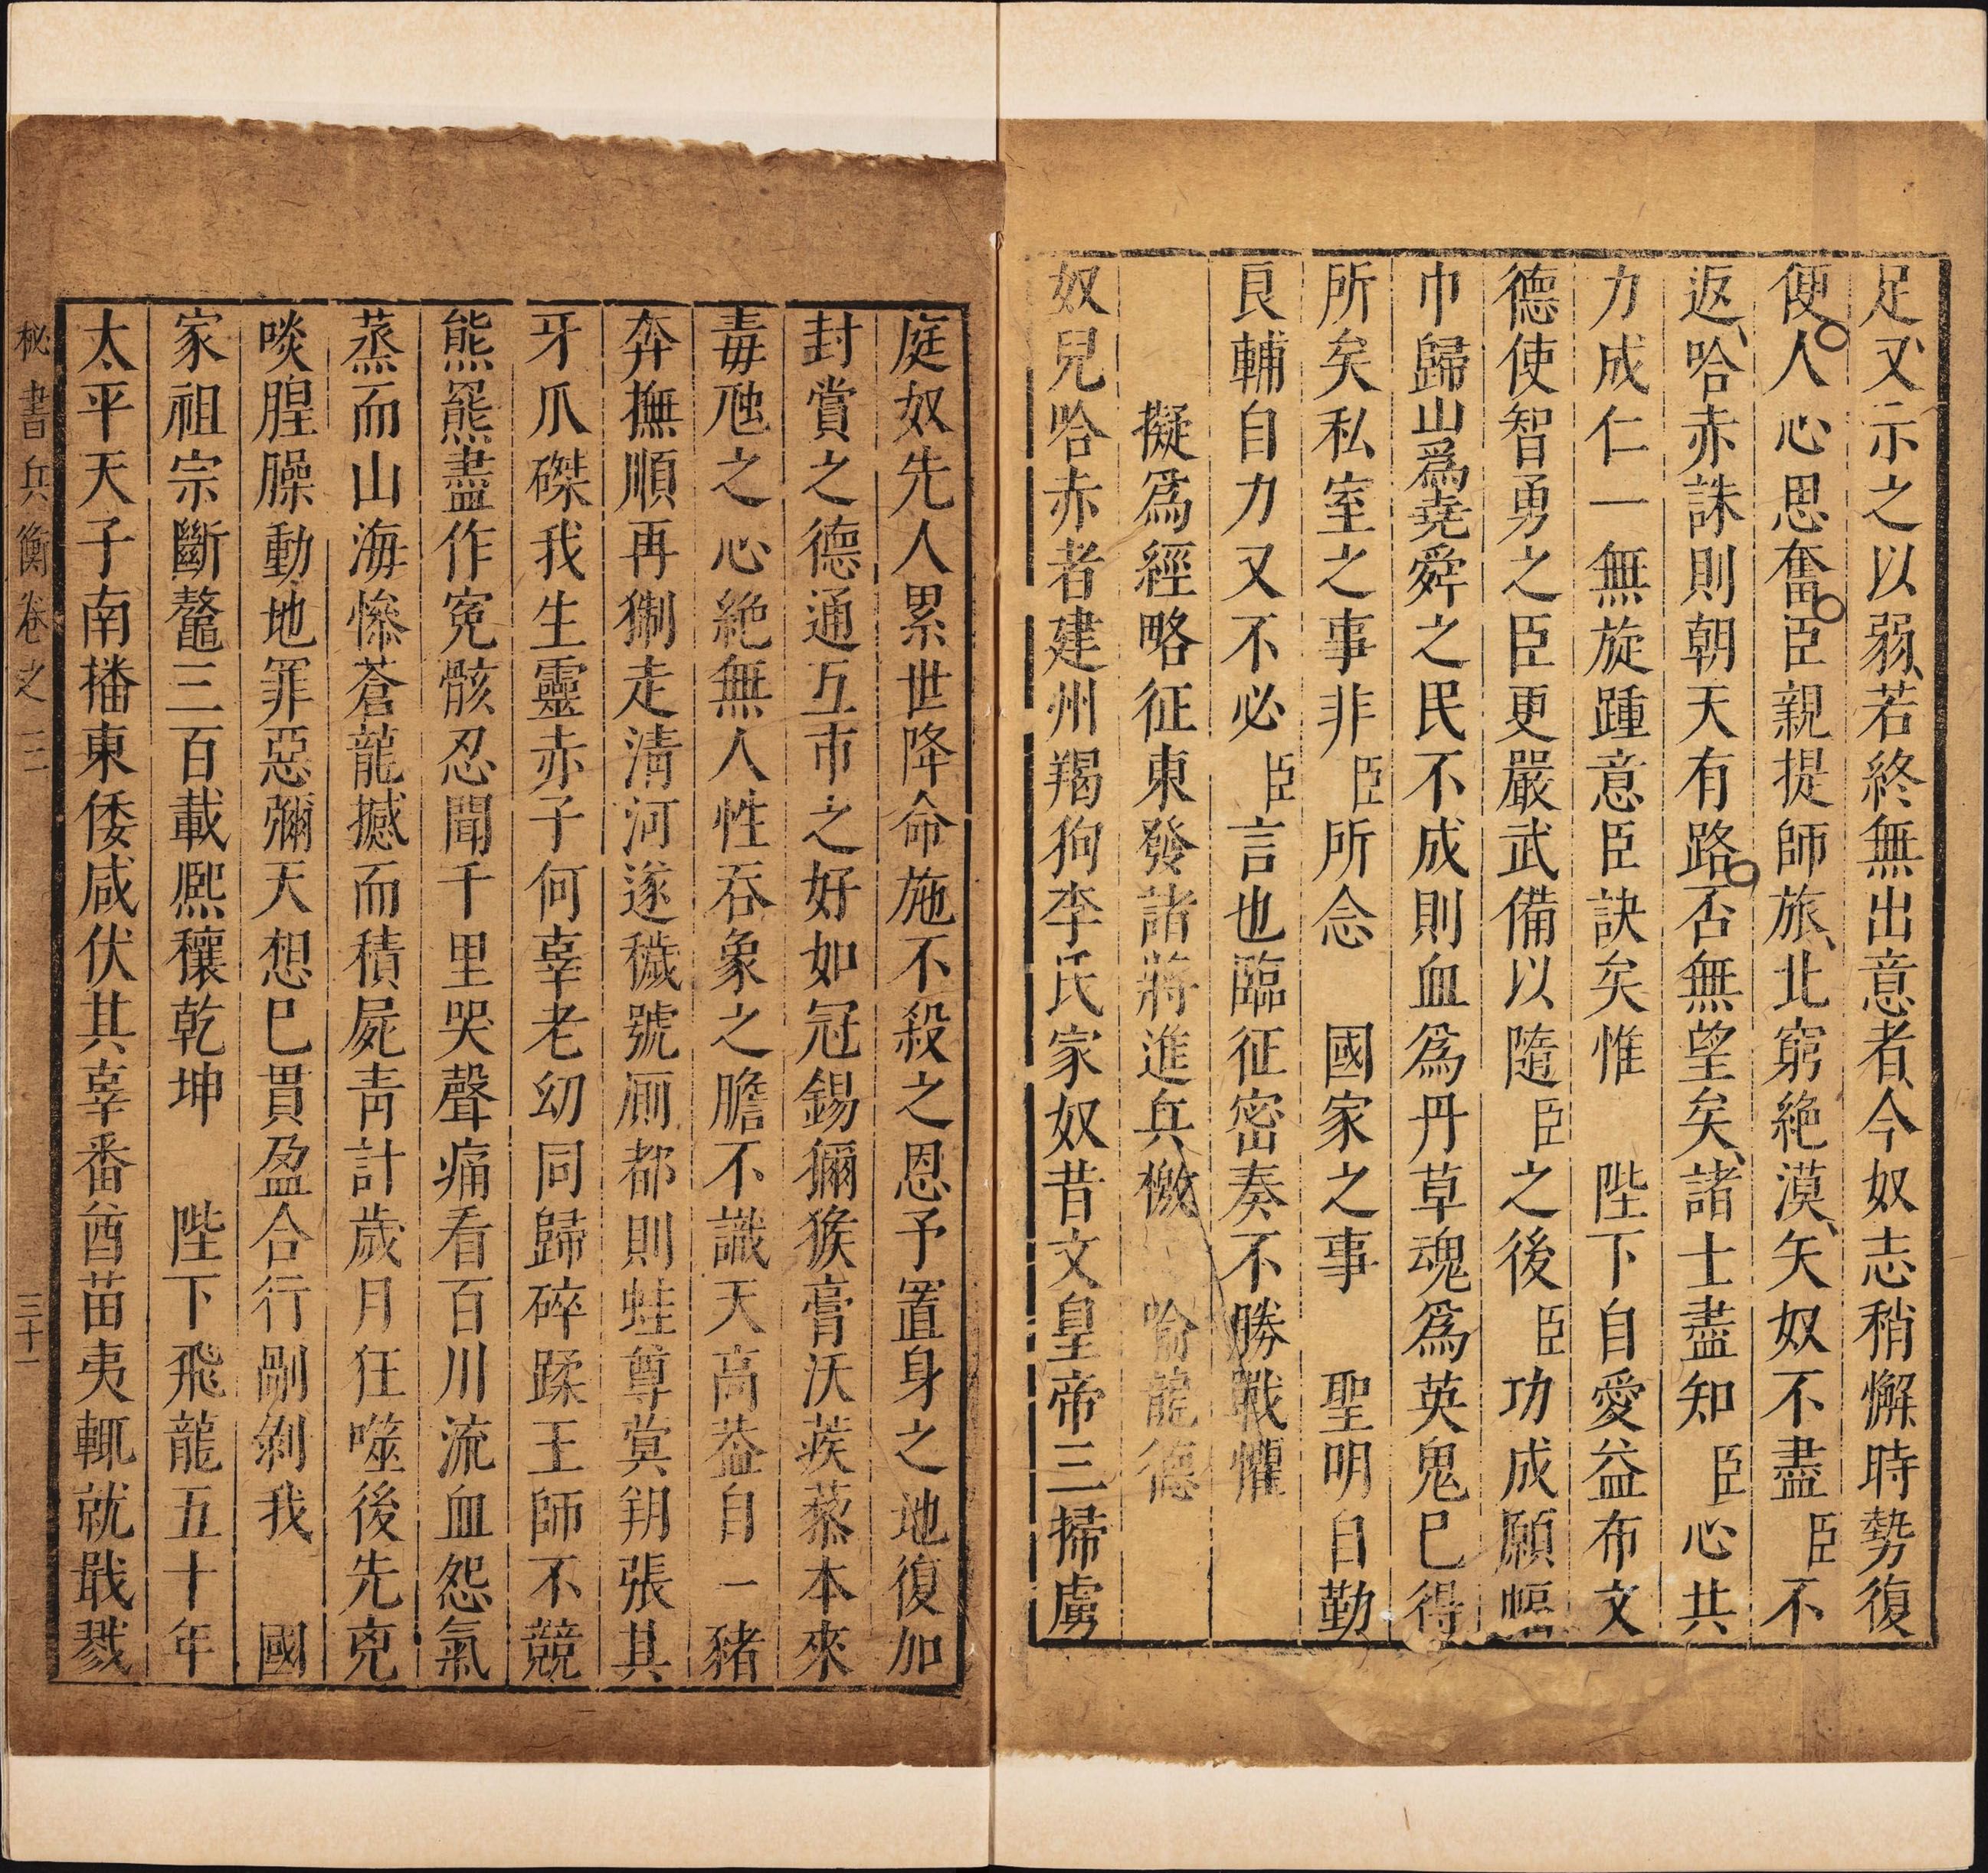 足又示之以弱若終無出意者今奴志稍懈時勢復
便人心思奮臣親提師旅北窮絶漠矢奴不盡臣不
返哈赤誅則朝天有路否無望矣諸士盡知臣心共
力成仁一無旋踵意臣訣矣惟 陛下自愛益布文
德使智勇之臣更嚴武備以隨臣之後臣功成願幅
巾歸山爲堯舜之民不成則血爲丹草魂爲英鬼巳得
所矣私室之事非臣所念 國家之事 聖明自勤
良輔自力又不必臣言也臨征密奏不勝戰懼
擬爲經略征東發諸將進兵檄 喻龍德
奴兒哈赤者建州羯狗李氏家奴昔文皇帝三掃虜
庭奴先人累世降命施不殺之恩予置身之地復加
封賞之德通互市之好如冠錫獼猴膏沃蒺藜本來
毒虺之心絶無人性吞象之膽不識天高葢自一豬
奔撫順再猘走清河遂穢號厠都則蛙尊蓂朔張其
牙爪磔我生靈赤子何辜老幼同歸碎蹂王師不競
熊羆盡作寃骸忍聞千里哭聲痛看百川流血怨氣
蒸而山海慘蒼龍撼而積屍靑計歲月狂噬後先兇
啖腥臊動地罪惡彌天想巳貫盈合行剮剝我 國
家祖宗斷鼇三百載熙穰乾坤 陛下飛龍五十年
太平天子南播東倭咸伏其辜番酋苗夷輒就戢戮
秘書兵衡卷之三 三十一